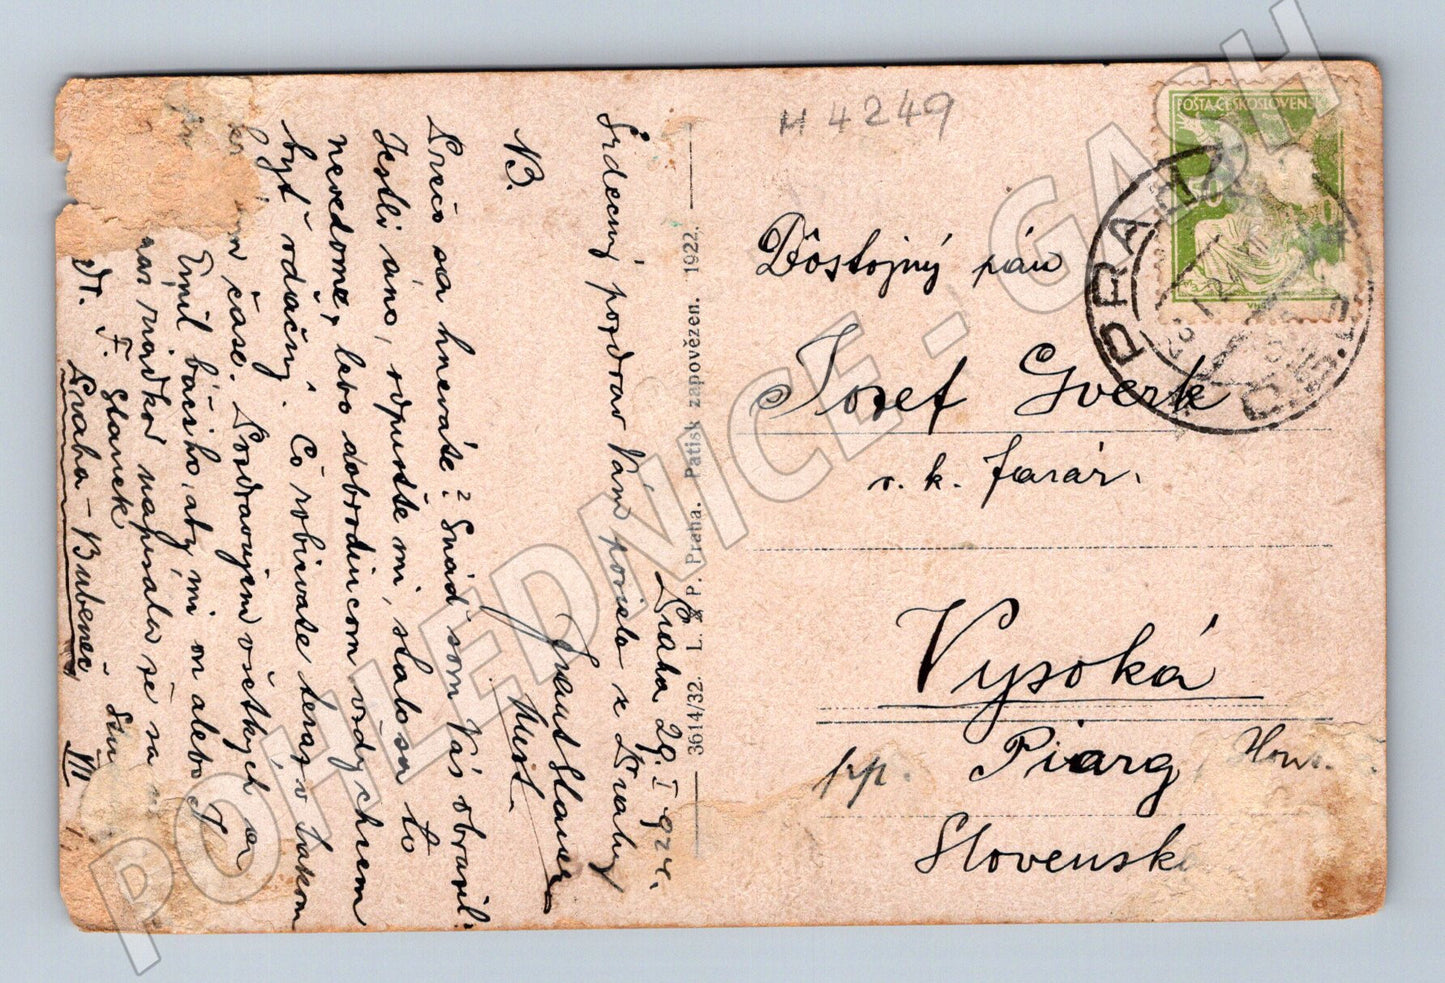 M 4249
POŠTA ČESKOSLOVENSK
PRAHA
Dôstojný pán
Jozef Gverk
r. k. farár.
Vysoká
pp. Piarg, Hont.
Slovensk
3614/32. L. & P. Praha. Patisk zapovězen. 1922.
Praha 29. I. 924.
Srdečný pozdrav Vám posiela z Prahy
Frant Stanek
NB.
Prečo sa hneváte? Snáď som Vás obrazil.
Jestli áno, odpusťte mi, stalo sa to
nevedome, lebo dobrodincom vždy chcem
byť vďačný. Čo robievate teraz v takom
čase. Pozdravujem všetkých
Emil bársko, aby mi on alebo
riadkov napísala
Fr. Stanek
Praha - Bubeneč VII
POHLEDNICE - GASH